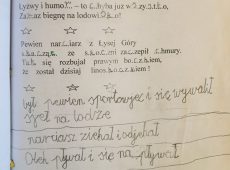 Łyzwy i humor – to chyba juz wszystko,
Zaraz biegnę na lodowisko!
Pewien narciarz z Łysej Góry
skacząc, ze skoczni zaczepił chmury.
Tak się rozbujał prawym boczkiem,
że został dzisiaj
był pewien sportowjec i się wywalił
szet na lodze
narciasz ziehał i odjehał
Olek pływał i się na pływał